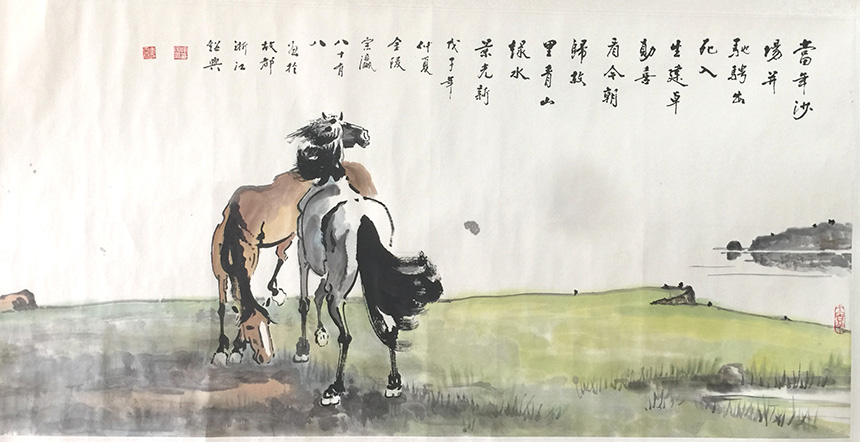 當年沙
場并
馳騁出
死入
生建卓
勛喜
看今朝
歸故
里青山
綠水
景光新
戊子年
仲夏
金陵
宗瀛
八十有
八
於
故都
浙江
紹興